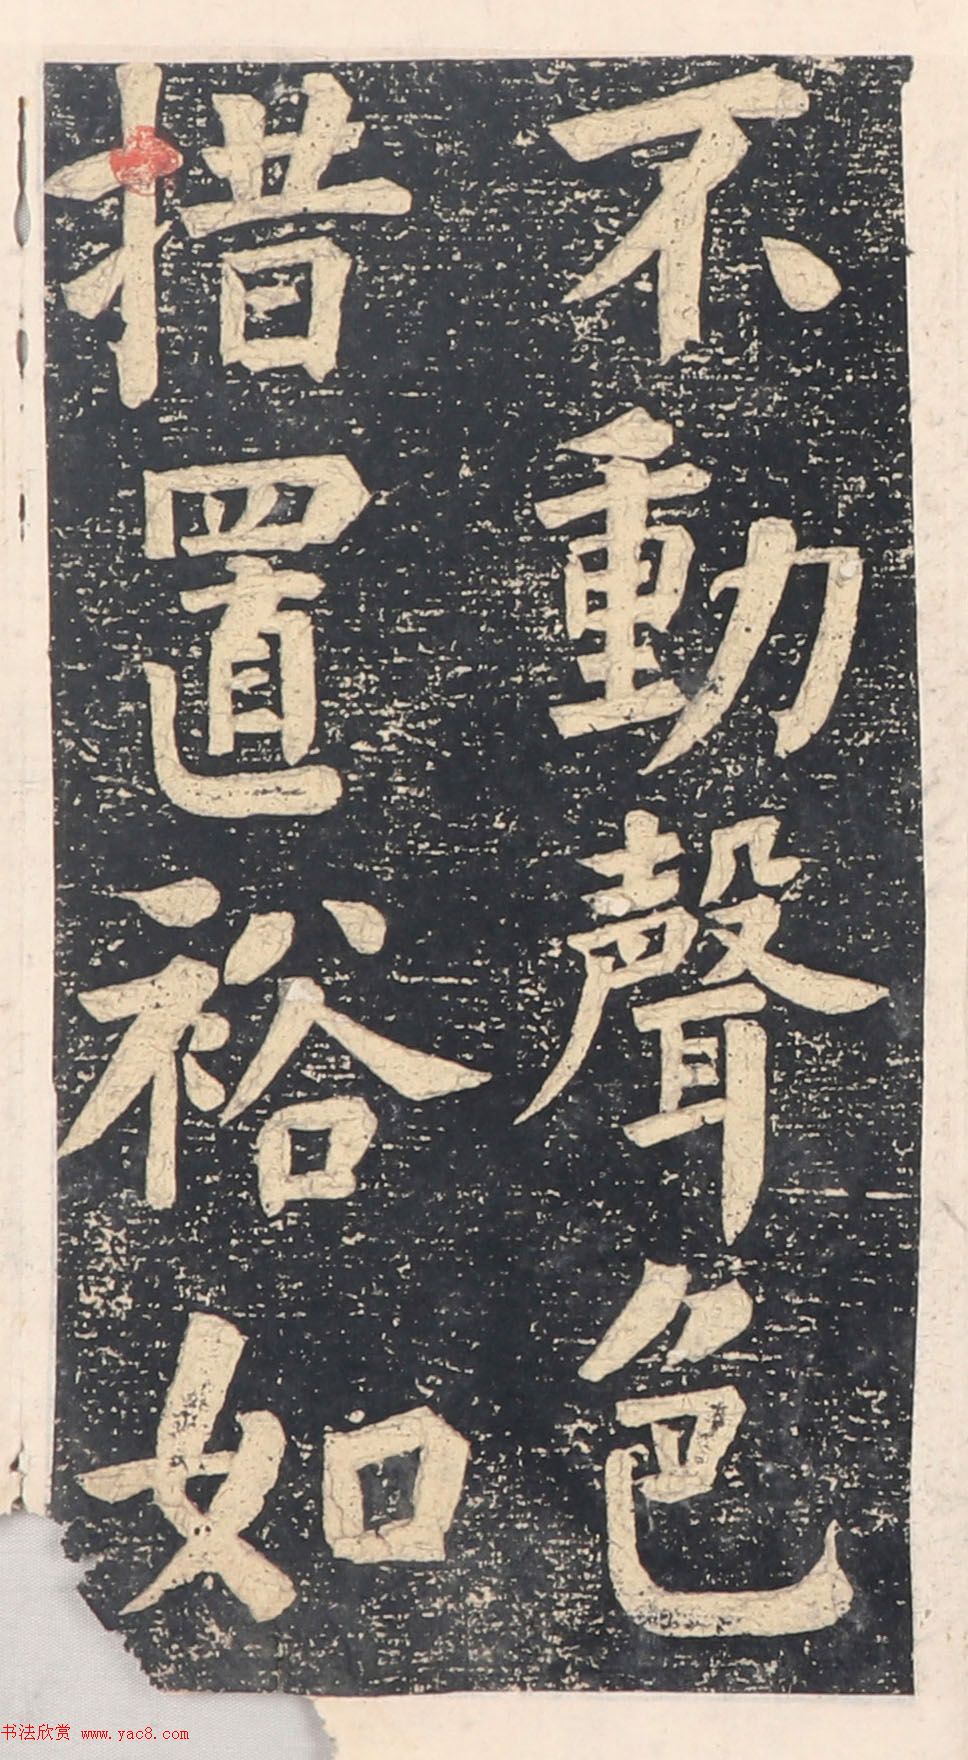 不動聲色
措置裕如
书法欣赏 www.yac8.com